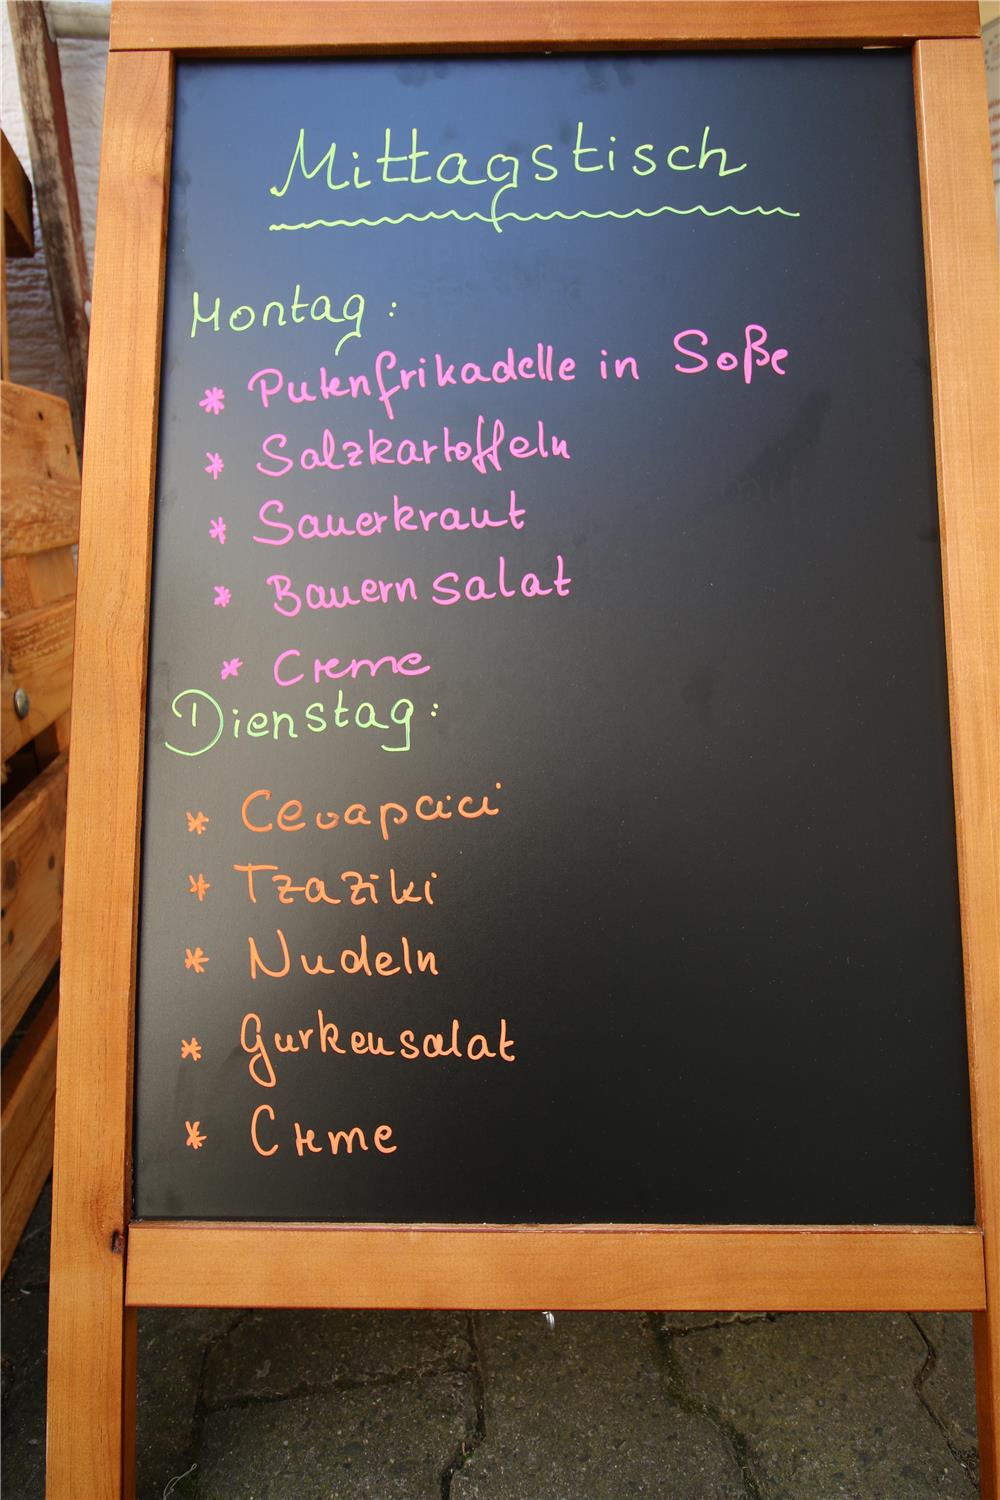 Mittagstisch
Montag:
* Putenfrikadelle in Soße
* Salzkartoffeln
* Sauerkraut
* Bauernsalat
* Creme
Dienstag:
* Cevapcici
* Tzaziki
* Nudeln
* Gurkensalat
* Creme